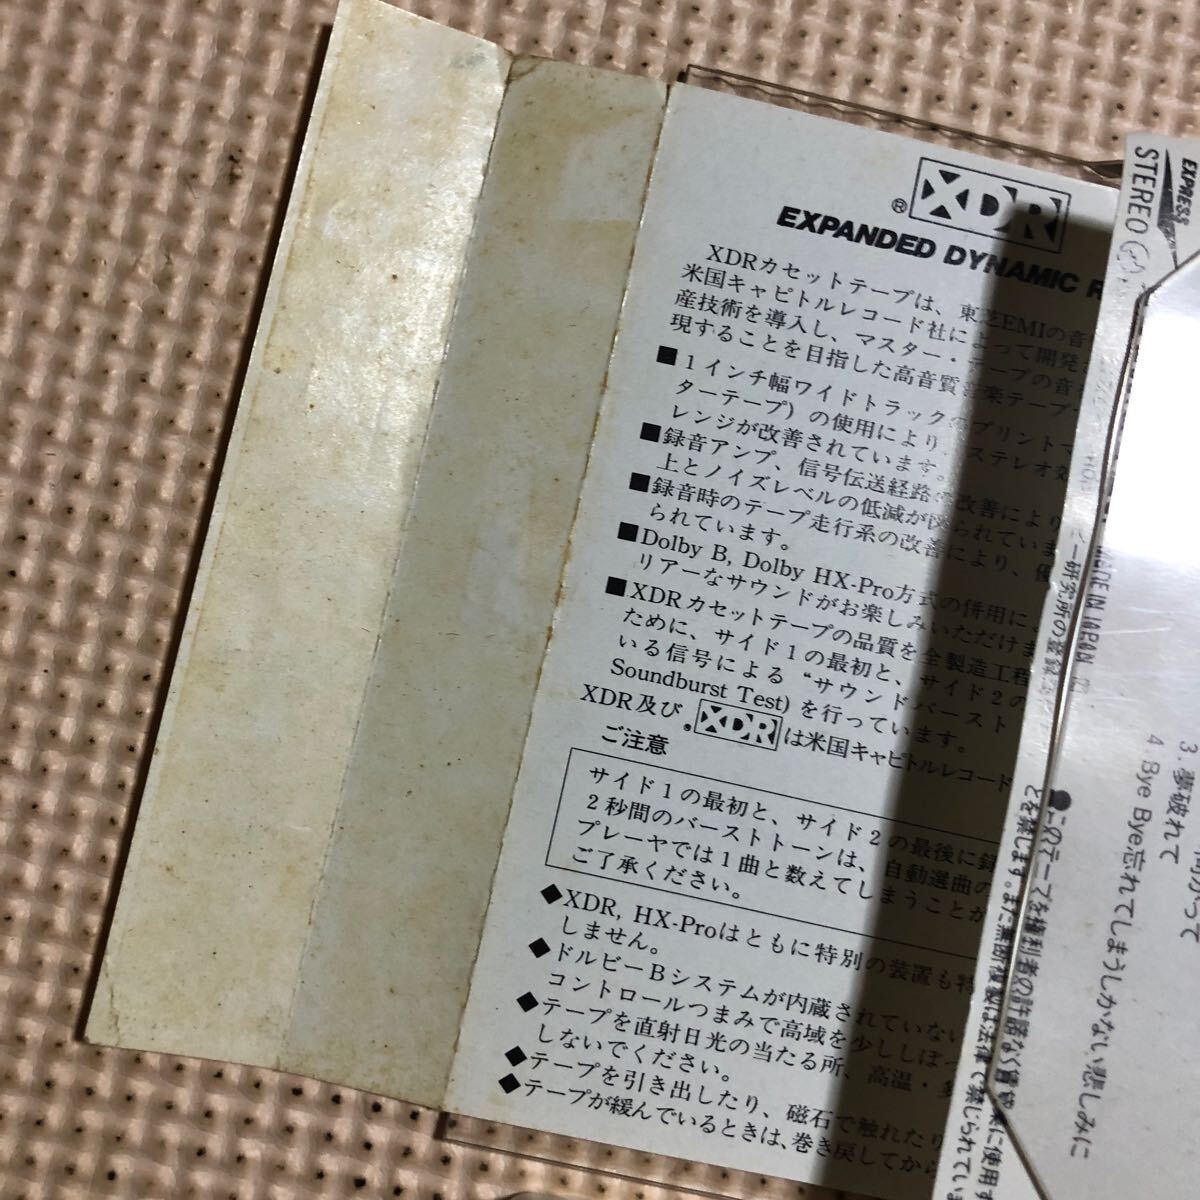 XDR
®
EXPANDED DYNAMIC R
XDRカセットテープは、東芝EMIの音
米国キャピトルレコード社によって開発
産技術を導入し、マスター・テープの音
現することを目指した高音質音楽テープ
■1インチ幅ワイドトラックのプリントマ
ターテープ)の使用により、ステレオ効
レンジが改善されています。
■録音アンプ、信号伝送経路の改善により
上とノイズレベルの低減が図られていま
■録音時のテープ走行系の改善により、優
られています。
■Dolby B, Dolby HX-Pro方式の併用に
リアーなサウンドがお楽しみいただけま
■XDRカセットテープの品質を全製造工程
ために、サイド1の最初と、サイド2の
いる信号による“サウンドバースト
Soundburst Test)を行っています。
XDR及び®XDRは米国キャピトルレコード
ご注意
サイド1の最初と、サイド2の最後に録
2秒間のバーストトーンは、自動選曲の
プレーヤでは1曲と数えてしまうことが
ご了承ください。
◆XDR, HX-Proはともに特別の装置も特
しません。
◆ドルビーBシステムが内蔵されていない
コントロールつまみで高域を少ししぼっ
◆テープを直射日光の当たる所、高温・
しないでください。
◆テープを引き出したり、磁石で触れたり
◆テープが緩んでいるときは、巻き戻してから
EXPRESS
STEREO
MADE IN JAPAN
ー研究所の登録
●このテープを権利者の許諾なく賃貸業に使用す
とを禁じます。また無断複製は法律で禁じられてい
3. 夢破れて
4. Bye Bye忘れてしまうしかない悲しみに